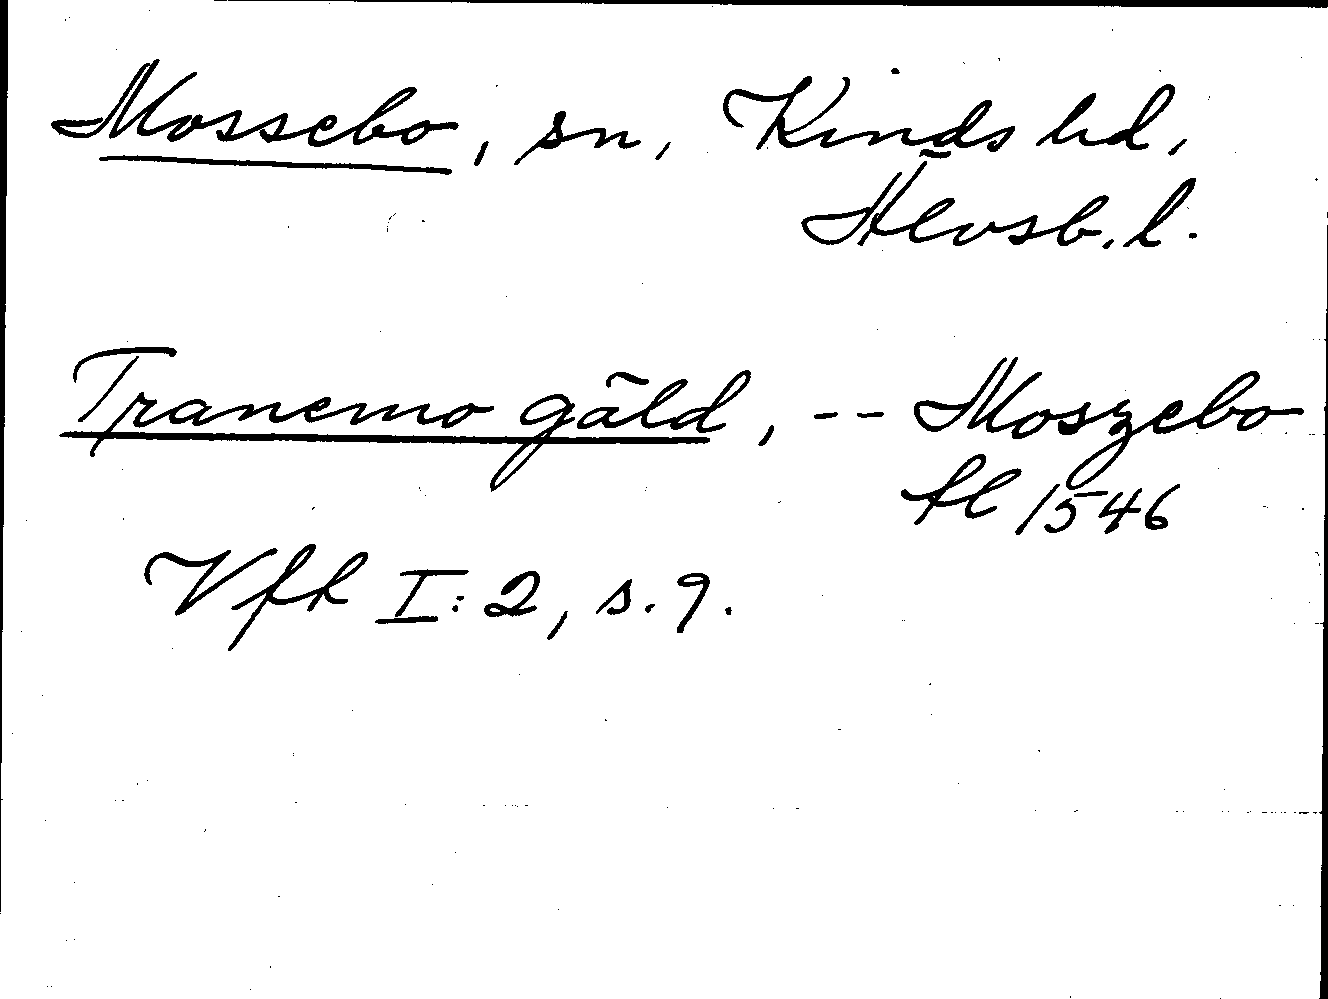 Mossebo, sn, Kinds hd,
Älvsb. l.
Tranemo gäld, -- Moszebo
fl 1546
Vfr I:2, s. 9.